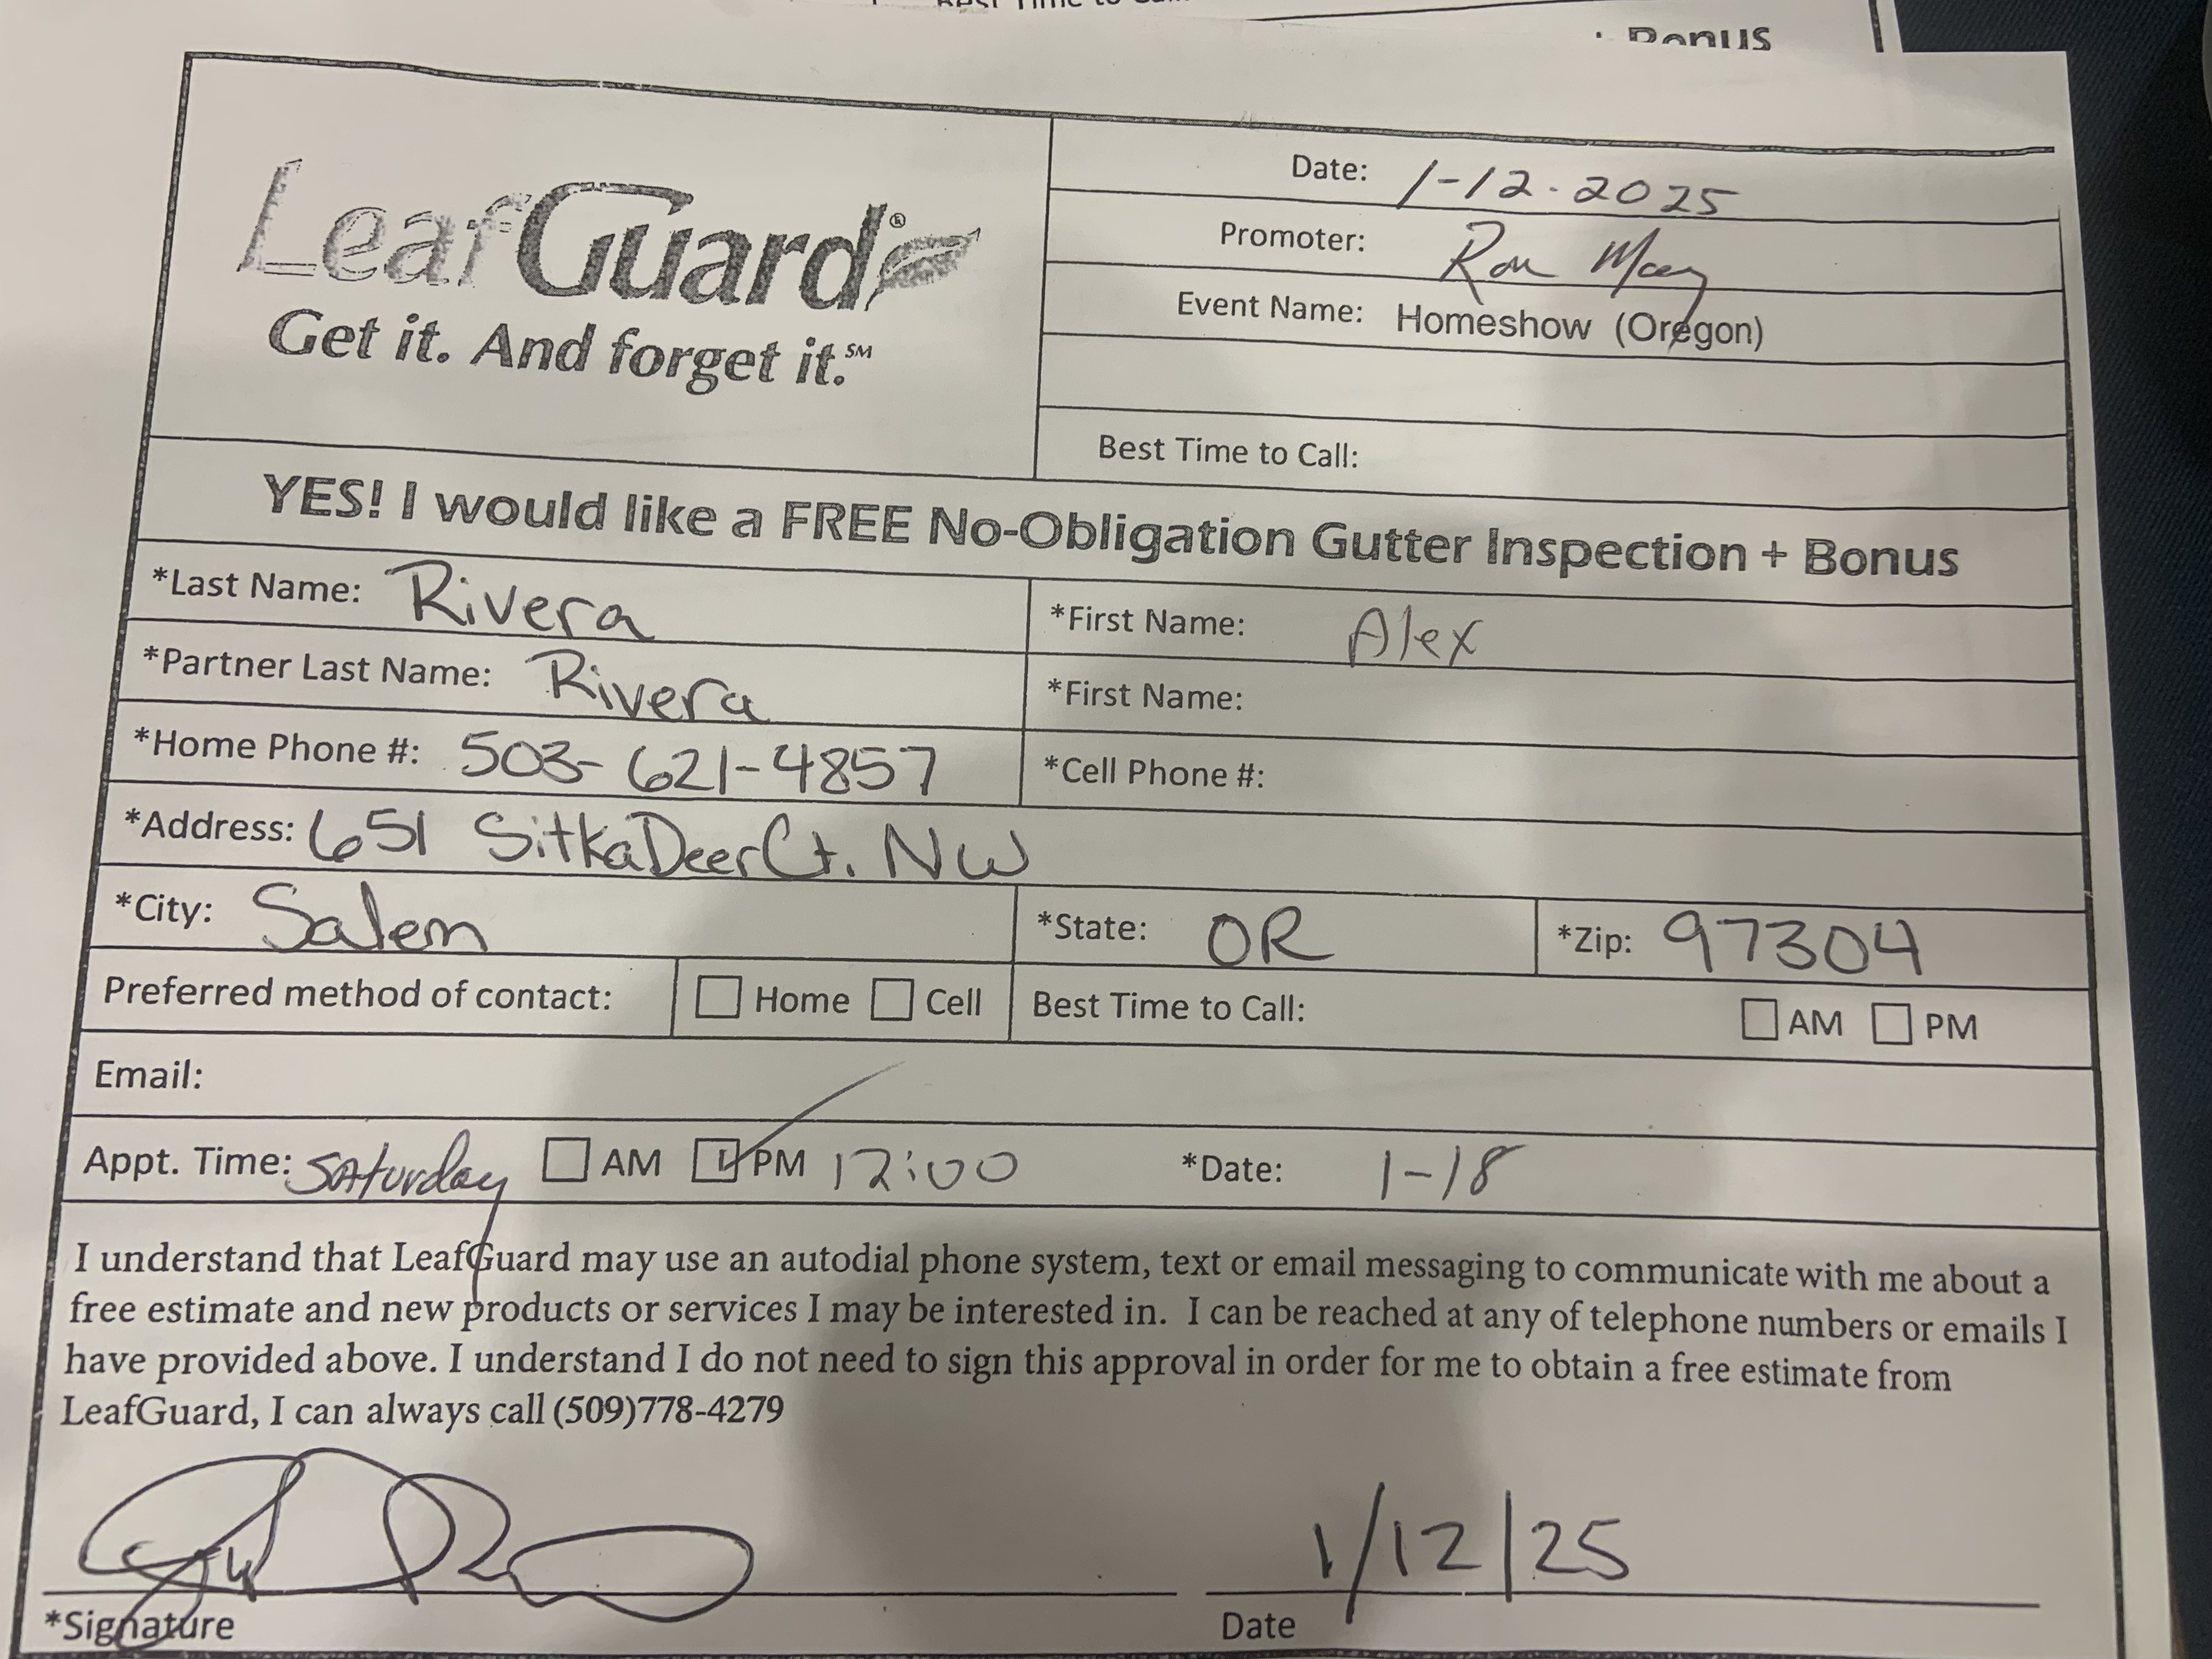 LeafGuard®
Get it. And forget it.℠
Date: 1-12-2025
Promoter: Ron
Event Name: Homeshow (Oregon)
Best Time to Call:
YES! I would like a FREE No-Obligation Gutter Inspection + Bonus
*Last Name: Rivera *First Name: Alex
*Partner Last Name: Rivera *First Name:
*Home Phone #: 503-621-4857 *Cell Phone #:
*Address: 651 Sitka Deer Ct. NW
*City: Salem *State: OR *Zip: 97304
Preferred method of contact: ☐ Home ☐ Cell Best Time to Call: ☐ AM ☐ PM
Email:
Appt. Time: Saturday ☐ AM ☑ PM 12:00 *Date: 1-18
I understand that LeafGuard may use an autodial phone system, text or email messaging to communicate with me about a
free estimate and new products or services I may be interested in. I can be reached at any of telephone numbers or emails I
have provided above. I understand I do not need to sign this approval in order for me to obtain a free estimate from
LeafGuard, I can always call (509)778-4279
1/12/25
*Signature Date
Bonus